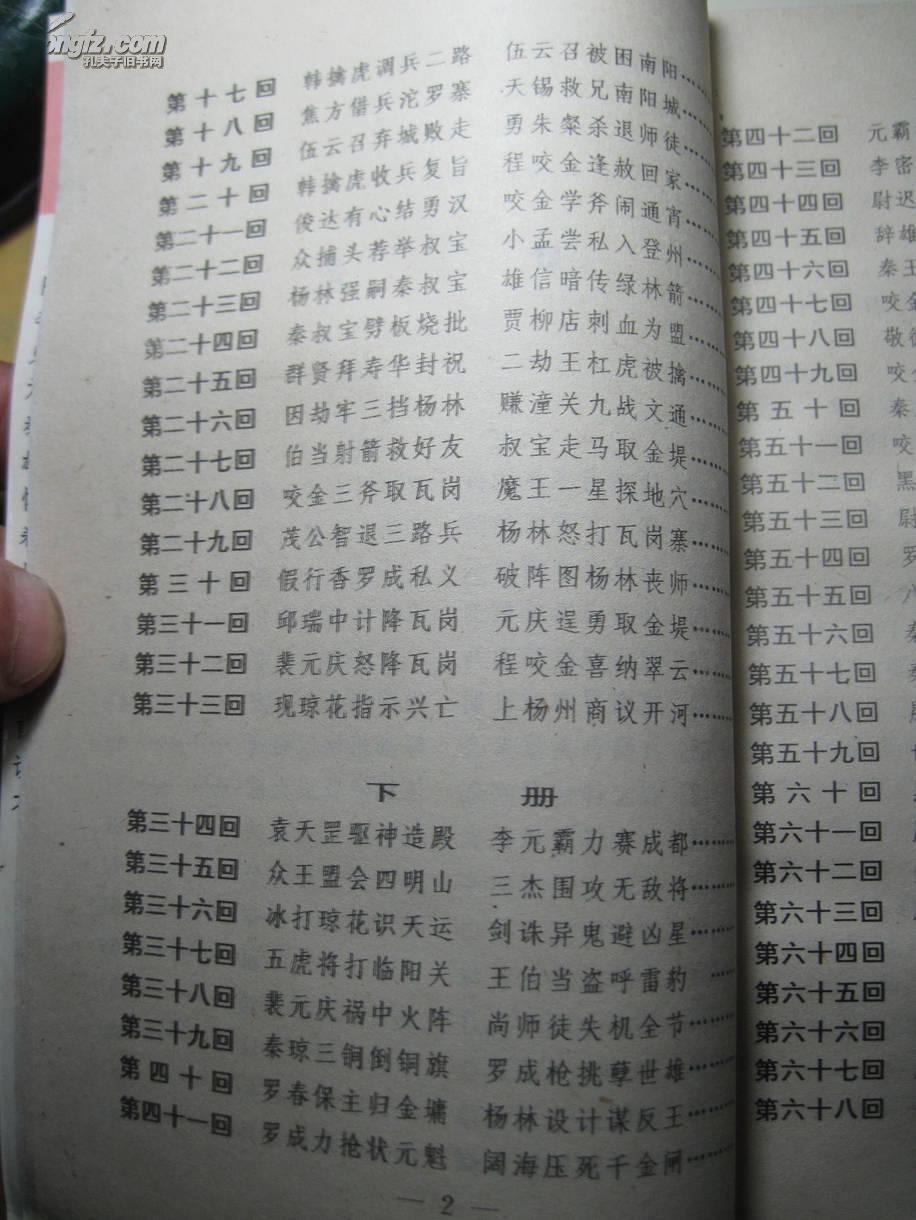 kongfz.com
孔夫子旧书网
第十七回 韩擒虎调兵二路 伍云召被困南阳……
第十八回 焦方借兵沱罗寨 天锡救兄南阳城……
第十九回 伍云召弃城败走 勇朱粲杀退师徒……
第二十回 韩擒虎收兵复旨 程咬金逢赦回家……
第二十一回 俊达有心结勇汉 咬金学斧闹通宵……
第二十二回 众捕头荐举叔宝 小孟尝私入登州……
第二十三回 杨林强嗣秦叔宝 雄信暗传绿林箭……
第二十四回 秦叔宝劈板烧批 贾柳店刺血为盟……
第二十五回 群贤拜寿华封祝 二劫王杠虎被擒……
第二十六回 因劫牢三挡杨林 赚潼关九战文通……
第二十七回 伯当射箭救好友 叔宝走马取金堤……
第二十八回 咬金三斧取瓦岗 魔王一星探地穴……
第二十九回 茂公智退三路兵 杨林怒打瓦岗寨……
第三十回 假行香罗成私义 破阵图杨林丧师……
第三十一回 邱瑞中计降瓦岗 元庆逞勇取金堤……
第三十二回 裴元庆怒降瓦岗 程咬金喜纳翠云……
第三十三回 现琼花指示兴亡 上杨州商议开河……
下 册
第三十四回 袁天罡驱神造殿 李元霸力赛成都……
第三十五回 众王盟会四明山 三杰围攻无敌将……
第三十六回 冰打琼花识天运 剑诛异鬼避凶星……
第三十七回 五虎将打临阳关 王伯当盗呼雷豹……
第三十八回 裴元庆祸中火阵 尚师徒失机全节……
第三十九回 秦琼三锏倒铜旗 罗成枪挑孽世雄……
第四十回 罗春保主归金墉 杨林设计谋反王……
第四十一回 罗成力抢状元魁 阔海压死千金闸……
— 2 —
第四十二回 元霸
第四十三回 李密
第四十四回 尉迟
第四十五回 辞雄
第四十六回 秦王
第四十七回 咬金
第四十八回 敬德
第四十九回 咬金
第五十回 秦
第五十一回 咬
第五十二回 黑
第五十三回 尉
第五十四回 罗
第五十五回
第五十六回
第五十七回
第五十八回
第五十九回
第六十回
第六十一回
第六十二回
第六十三回
第六十四回
第六十五回
第六十六回
第六十七回
第六十八回